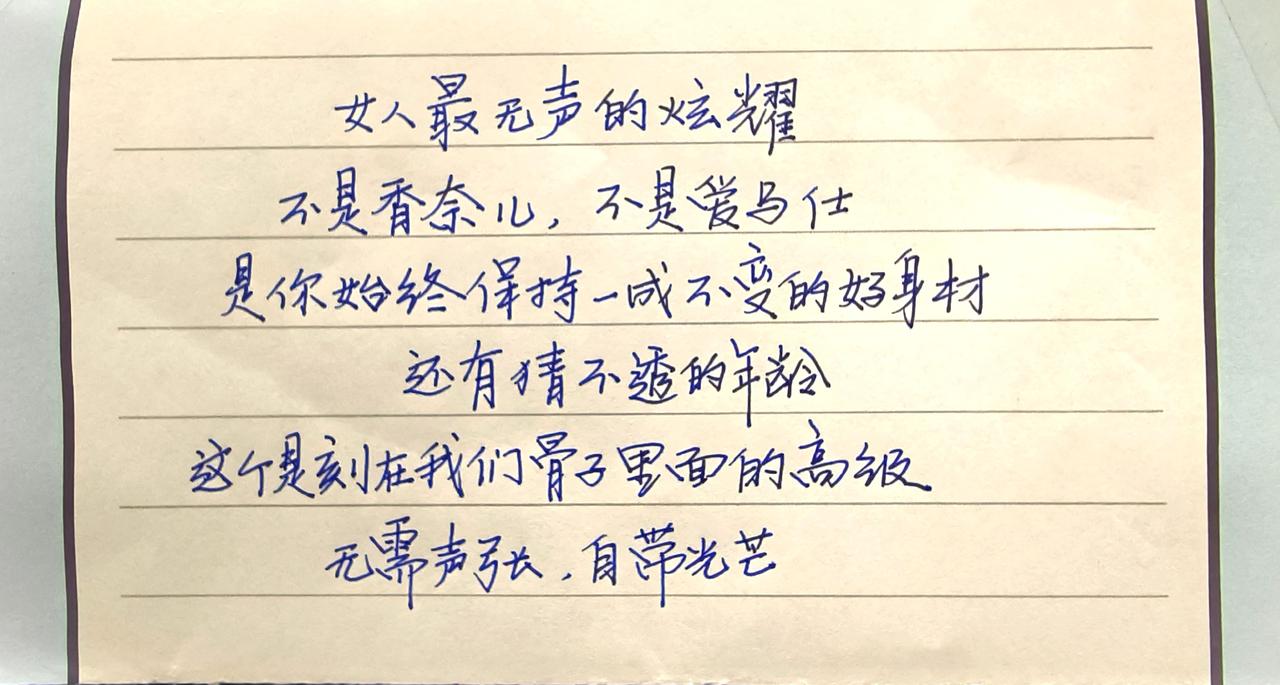 女人最无声的炫耀
不是香奈儿，不是爱马仕
是你始终保持一成不变的好身材
还有猜不透的年龄
这个是刻在我们骨子里面的高级
无需声张，自带光芒